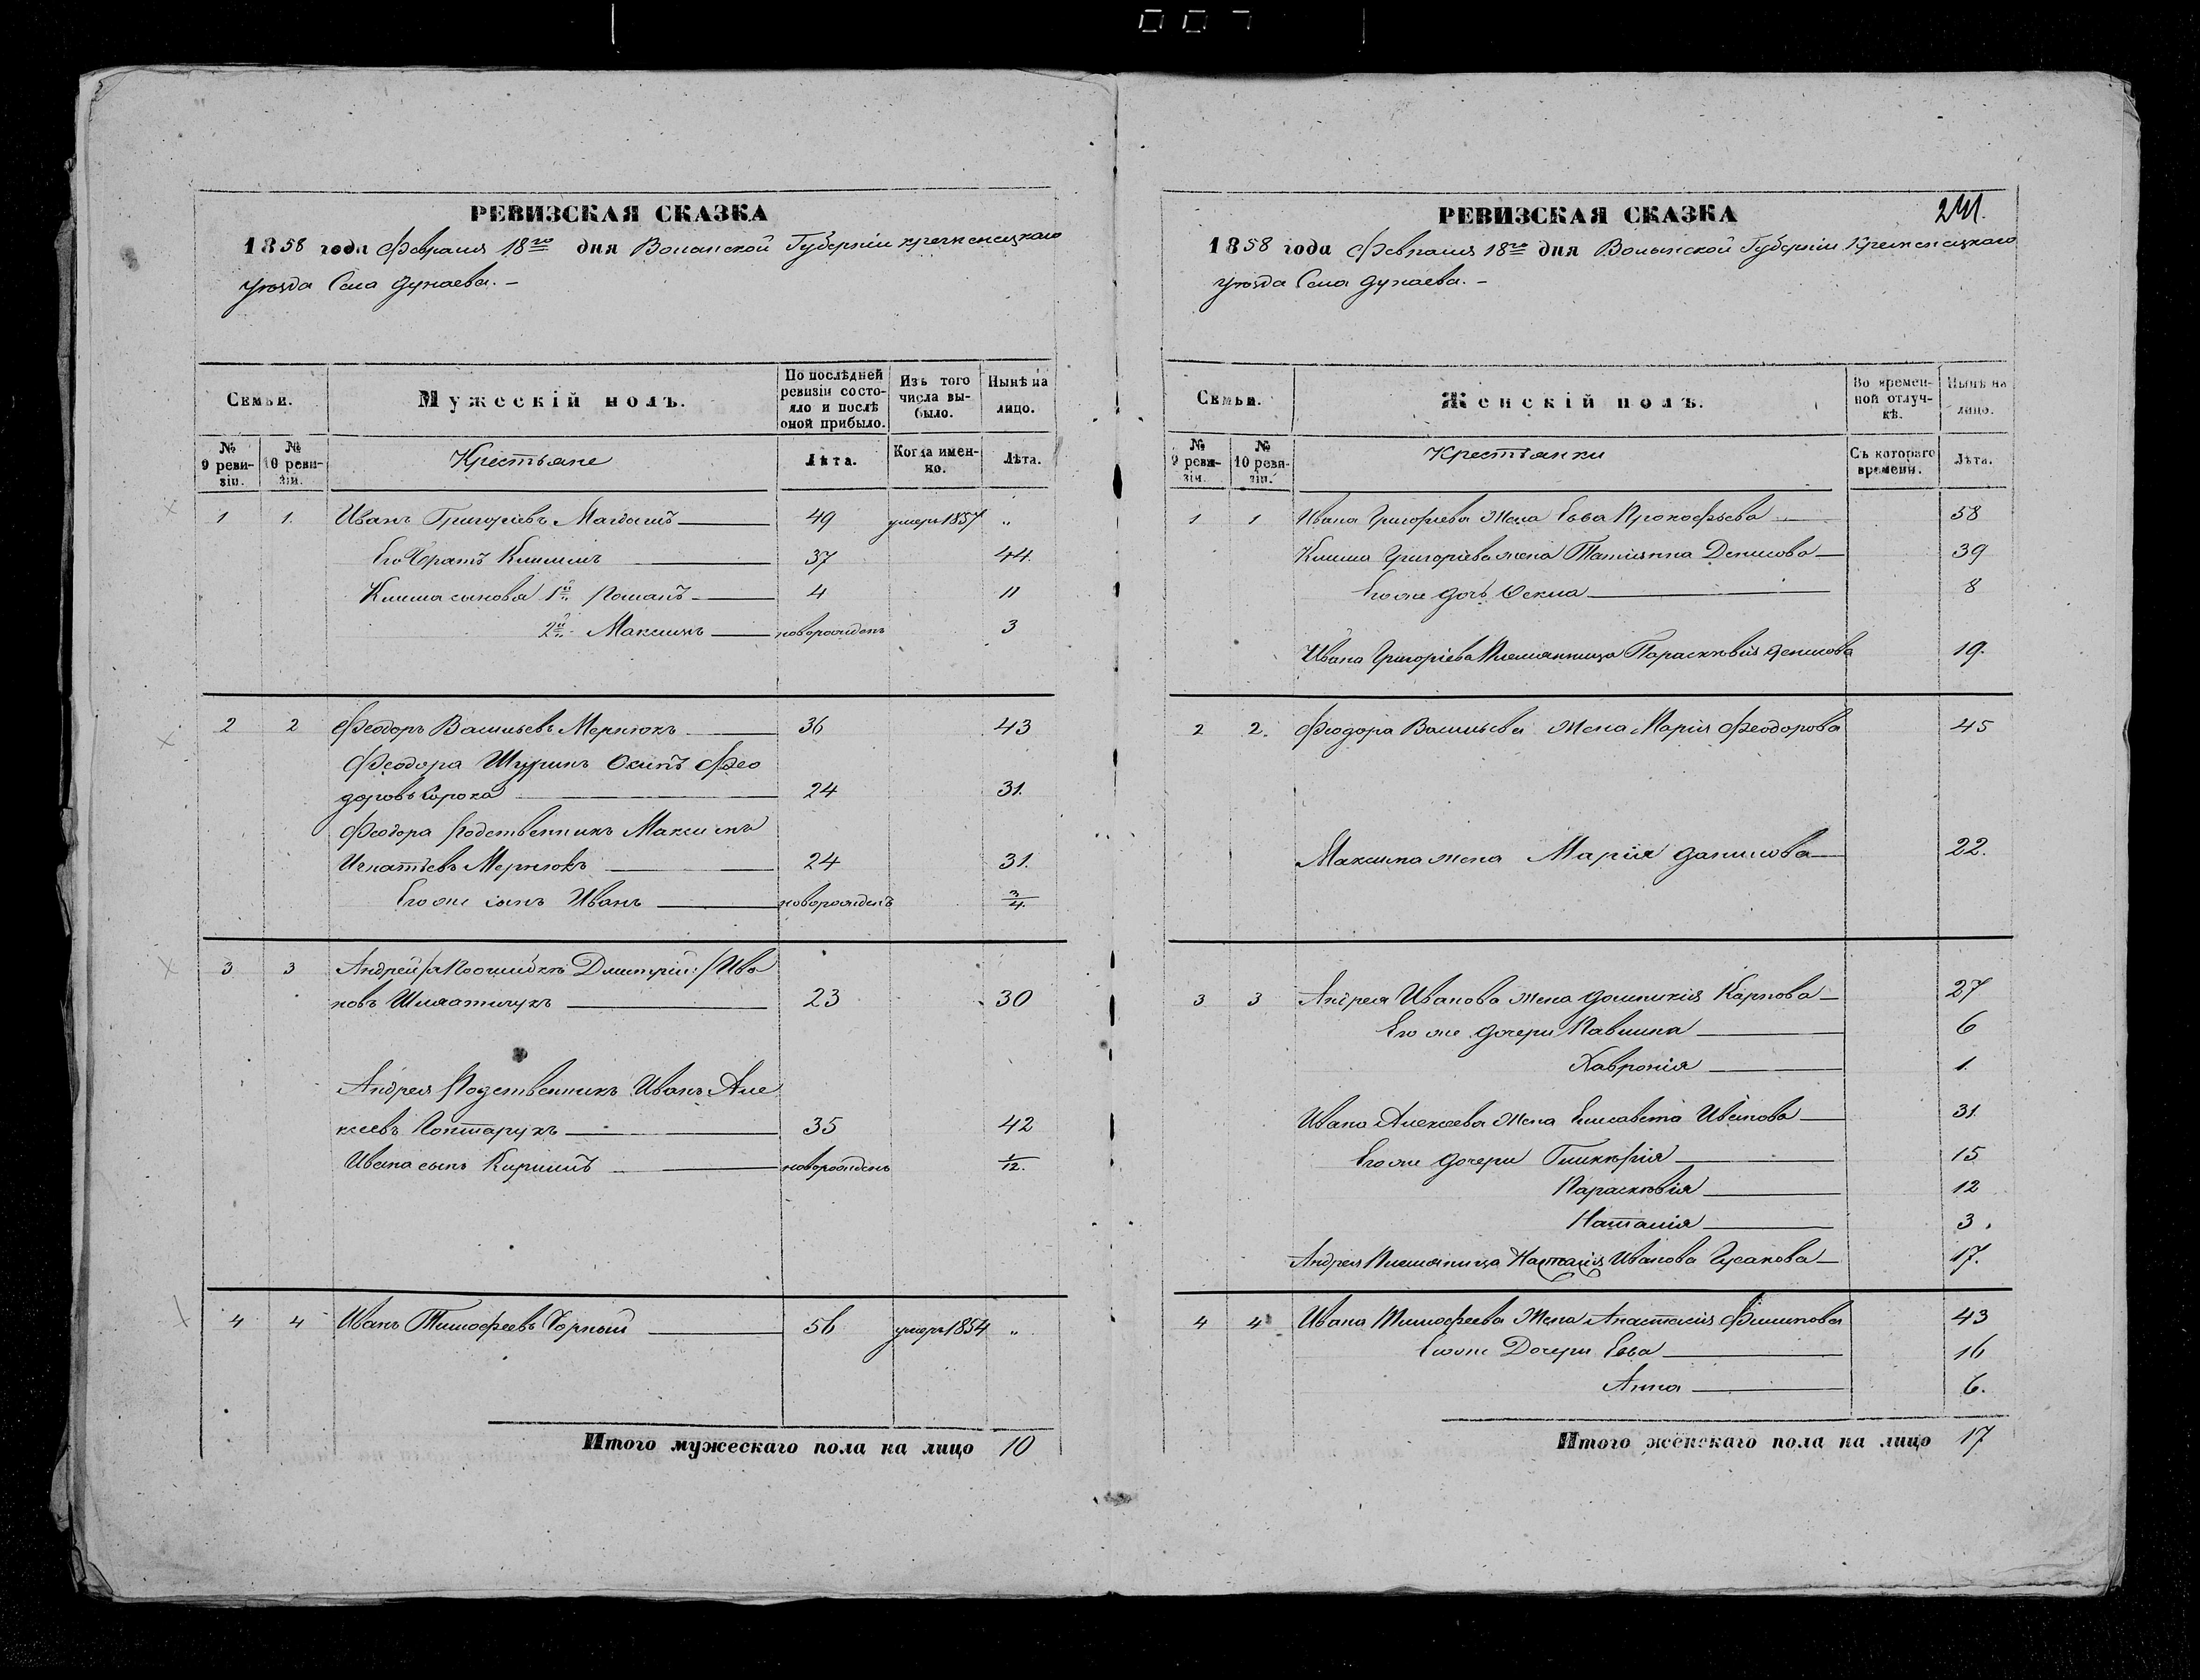 007
РЕВИЗСКАЯ СКАЗКА
1858 года Февраля 18го дня Волынской Губерніи кременецкаго
уѣзда Села Дунаева. –
Семьи.
Мужескій полъ.
По послѣдней ревизіи состояло и послѣ оной прибыло.
Изъ того числа выбыло.
Нынѣ на лицо.
№ 9 ревизіи.
№ 10 ревизіи.
Крестьяне
Лѣта.
Когда именно.
Лѣта.
1 1. Иванъ Григоріевъ 49 умеръ 1857 "
Его братъ Климъ 37 44.
Клима сыновья 1й Романъ 4 11
2й Максимъ новорожденъ 3
2 2 Феодоръ Васильевъ Мернюкъ 36 43
Феодора Шуринъ Осипъ Фео
доровъ Сорока 24 31.
Феодора Родственникъ Максимъ
Игнатьевъ Мернюкъ 24 31.
Его же сынъ Иванъ новорожденъ 3/4.
3 3 Андрей /а Дмитрій:/ Ива
новъ 23 30
Андрея Родственникъ Иванъ Але
ксѣевъ 35 42
Ивана сынъ Кирилъ новорожденъ 1/12.
4 4 Иванъ Тимофеевъ Чорный 56 умеръ 1854 "
Итого мужескаго пола на лицо 10
РЕВИЗСКАЯ СКАЗКА
241.
1858 года Февраля 18го дня Волынской Губерніи Кременецкаго
уѣзда Села Дунаева. –
Семьи.
Женскій полъ.
Во временной отлучкѣ.
Нынѣ на лицо.
№ 9 ревизіи.
№ 10 ревизіи.
Крестьянки
Съ котораго времени.
Лѣта.
1 1 Ивана Григорьева Жена Евва Прокофьева 58
Клима Григоріева жена Татіянна Денисова 39
Его же дочь Фекла 8
Ивана Григоріева Племянница Парасковія Денисова 19.
2 2. Феодора Васильева Жена Марія Феодорова 45
Максима жена Марія Данилова 22.
3 3 Андрея Иванова жена Домникія Карпова 27
Его же дочери Павлина 6
Хавронія 1.
Ивана Алексѣева Жена Елисавета Иванова 31.
Его же дочери Гликерія 15
Парасковія 12
Наталія 3.
Андрея Племяница Наталія Иванова Гусакова 17.
4 4 Ивана Тимофеева Жена Анастасія Филипова 43
Его же Дочери Евва 16
Анна 6.
Итого женскаго пола на лицо 17